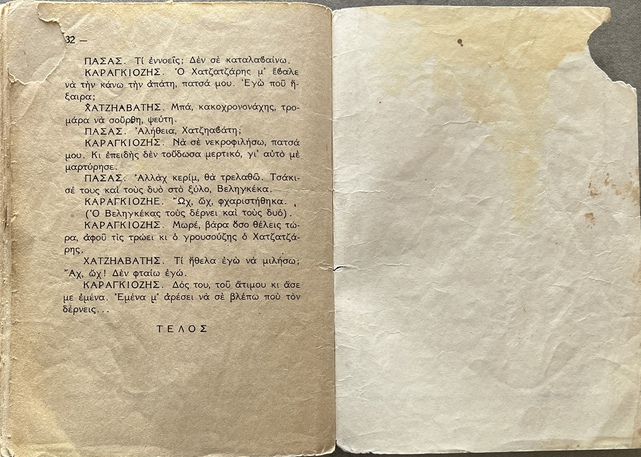 32 —
ΠΑΣΑΣ. Τί ἐννοεῖς; Δὲν σὲ καταλαβαίνω.
ΚΑΡΑΓΚΙΟΖΗΣ. Ὁ Χατζατζάρης μ' ἔβαλε
νὰ τὴν κάνω τὴν ἀπάτη, πατσά μου. Ἐγὼ ποῦ ἤ-
ξαιρα;
ΧΑΤΖΗΑΒΑΤΗΣ. Μπά, κακοχρονονάχης, τρο-
μάρα νὰ σοὔρθη, ψεύτη.
ΠΑΣΑΣ. Ἀλήθεια, Χατζηαβάτη;
ΚΑΡΑΓΚΙΟΖΗΣ. Νὰ σὲ νεκροφιλήσω, πατσά
μου. Κι ἐπειδὴς δὲν τοὔδωσα μερτικό, γι' αὐτὸ μὲ
μαρτύρησε.
ΠΑΣΑΣ. Ἀλλάχ κερίμ, θὰ τρελαθῶ. Τσάκι-
σέ τους καὶ τοὺς δυὸ στὸ ξύλο, Βεληγκέκα.
ΚΑΡΑΓΚΙΟΖΗΕ. Ὤχ, ὤχ, φχαριστήθηκα.
(Ὁ Βεληγκέκας τοὺς δέρνει καὶ τοὺς δυό).
ΚΑΡΑΓΚΙΟΖΗΣ. Μωρέ, βάρα ὅσο θέλεις τώ-
ρα, ἀφοῦ τὶς τρώει κι ὁ γρουσούζης ὁ Χατζατζά-
ρης.
ΧΑΤΖΗΑΒΑΤΗΣ. Τί ἤθελα ἐγὼ νὰ μιλήσω;
Ἄχ, ὤχ! Δὲν φταίω ἐγώ.
ΚΑΡΑΓΚΙΟΖΗΣ. Δός του, τοῦ ἄτιμου κι ἄσε
με ἐμένα. Ἐμένα μ' ἀρέσει νὰ σὲ βλέπω ποὺ τὸν
δέρνεις...
ΤΕΛΟΣ